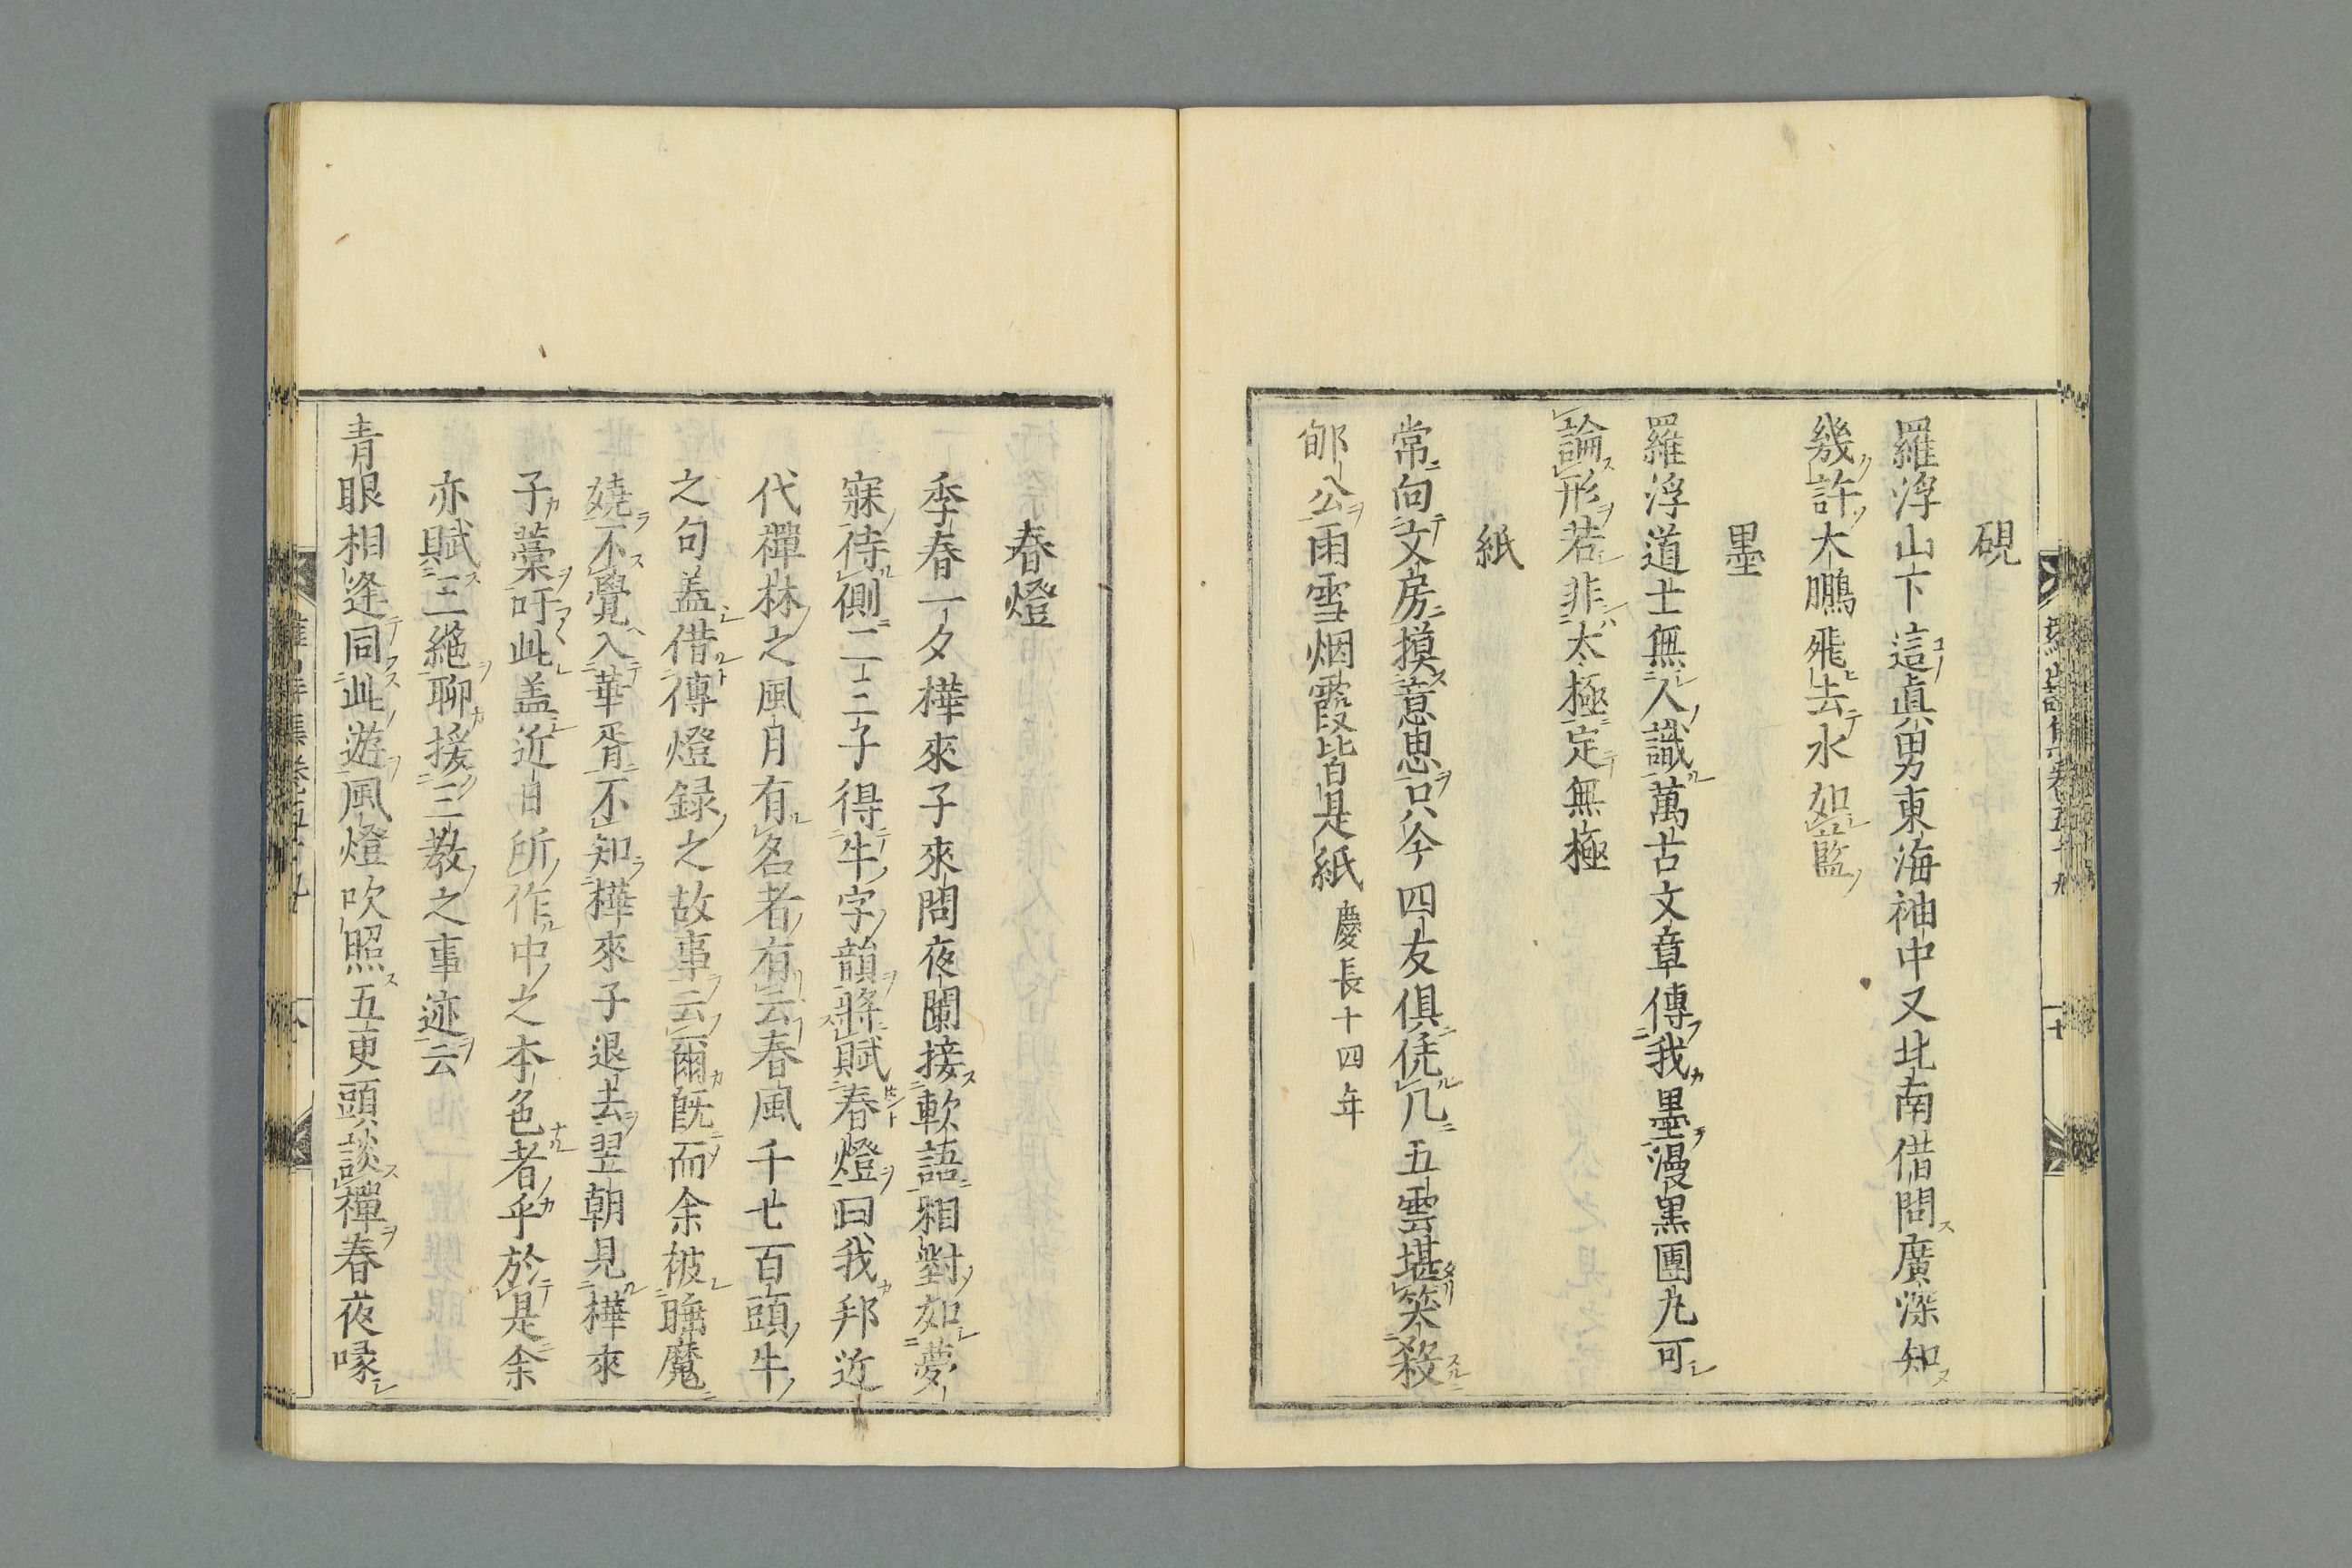 硯
羅浮山下這眞男東海袖中又北南借問廣深知
幾許大鵬飛去水如藍
墨
羅浮道士無人識萬古文章傳我墨漫黒團丸可
論形若非太極定無極
紙
常向文房摸意思只今四友俱凭几五雲堪笑殺
郇公雨雪烟霞皆是紙 慶長十四年
春燈
季春一夕樺來子來問夜闌接軟語相對如夢
寐待側二三子得牛字韻將賦春燈曰我邦近
代禪林之風月有名者有云春風千七百頭牛
之句盖借傳燈録之故事云爾既而余被睡魔
嬈不覺入華胥不知樺來子退去翌朝見樺來
子藁吁此盖近日所作中之本色者乎於是余
亦賦三絶聊援三教之事迹云
青眼相逢同此遊風燈吹照五更頭談禪春夜喙